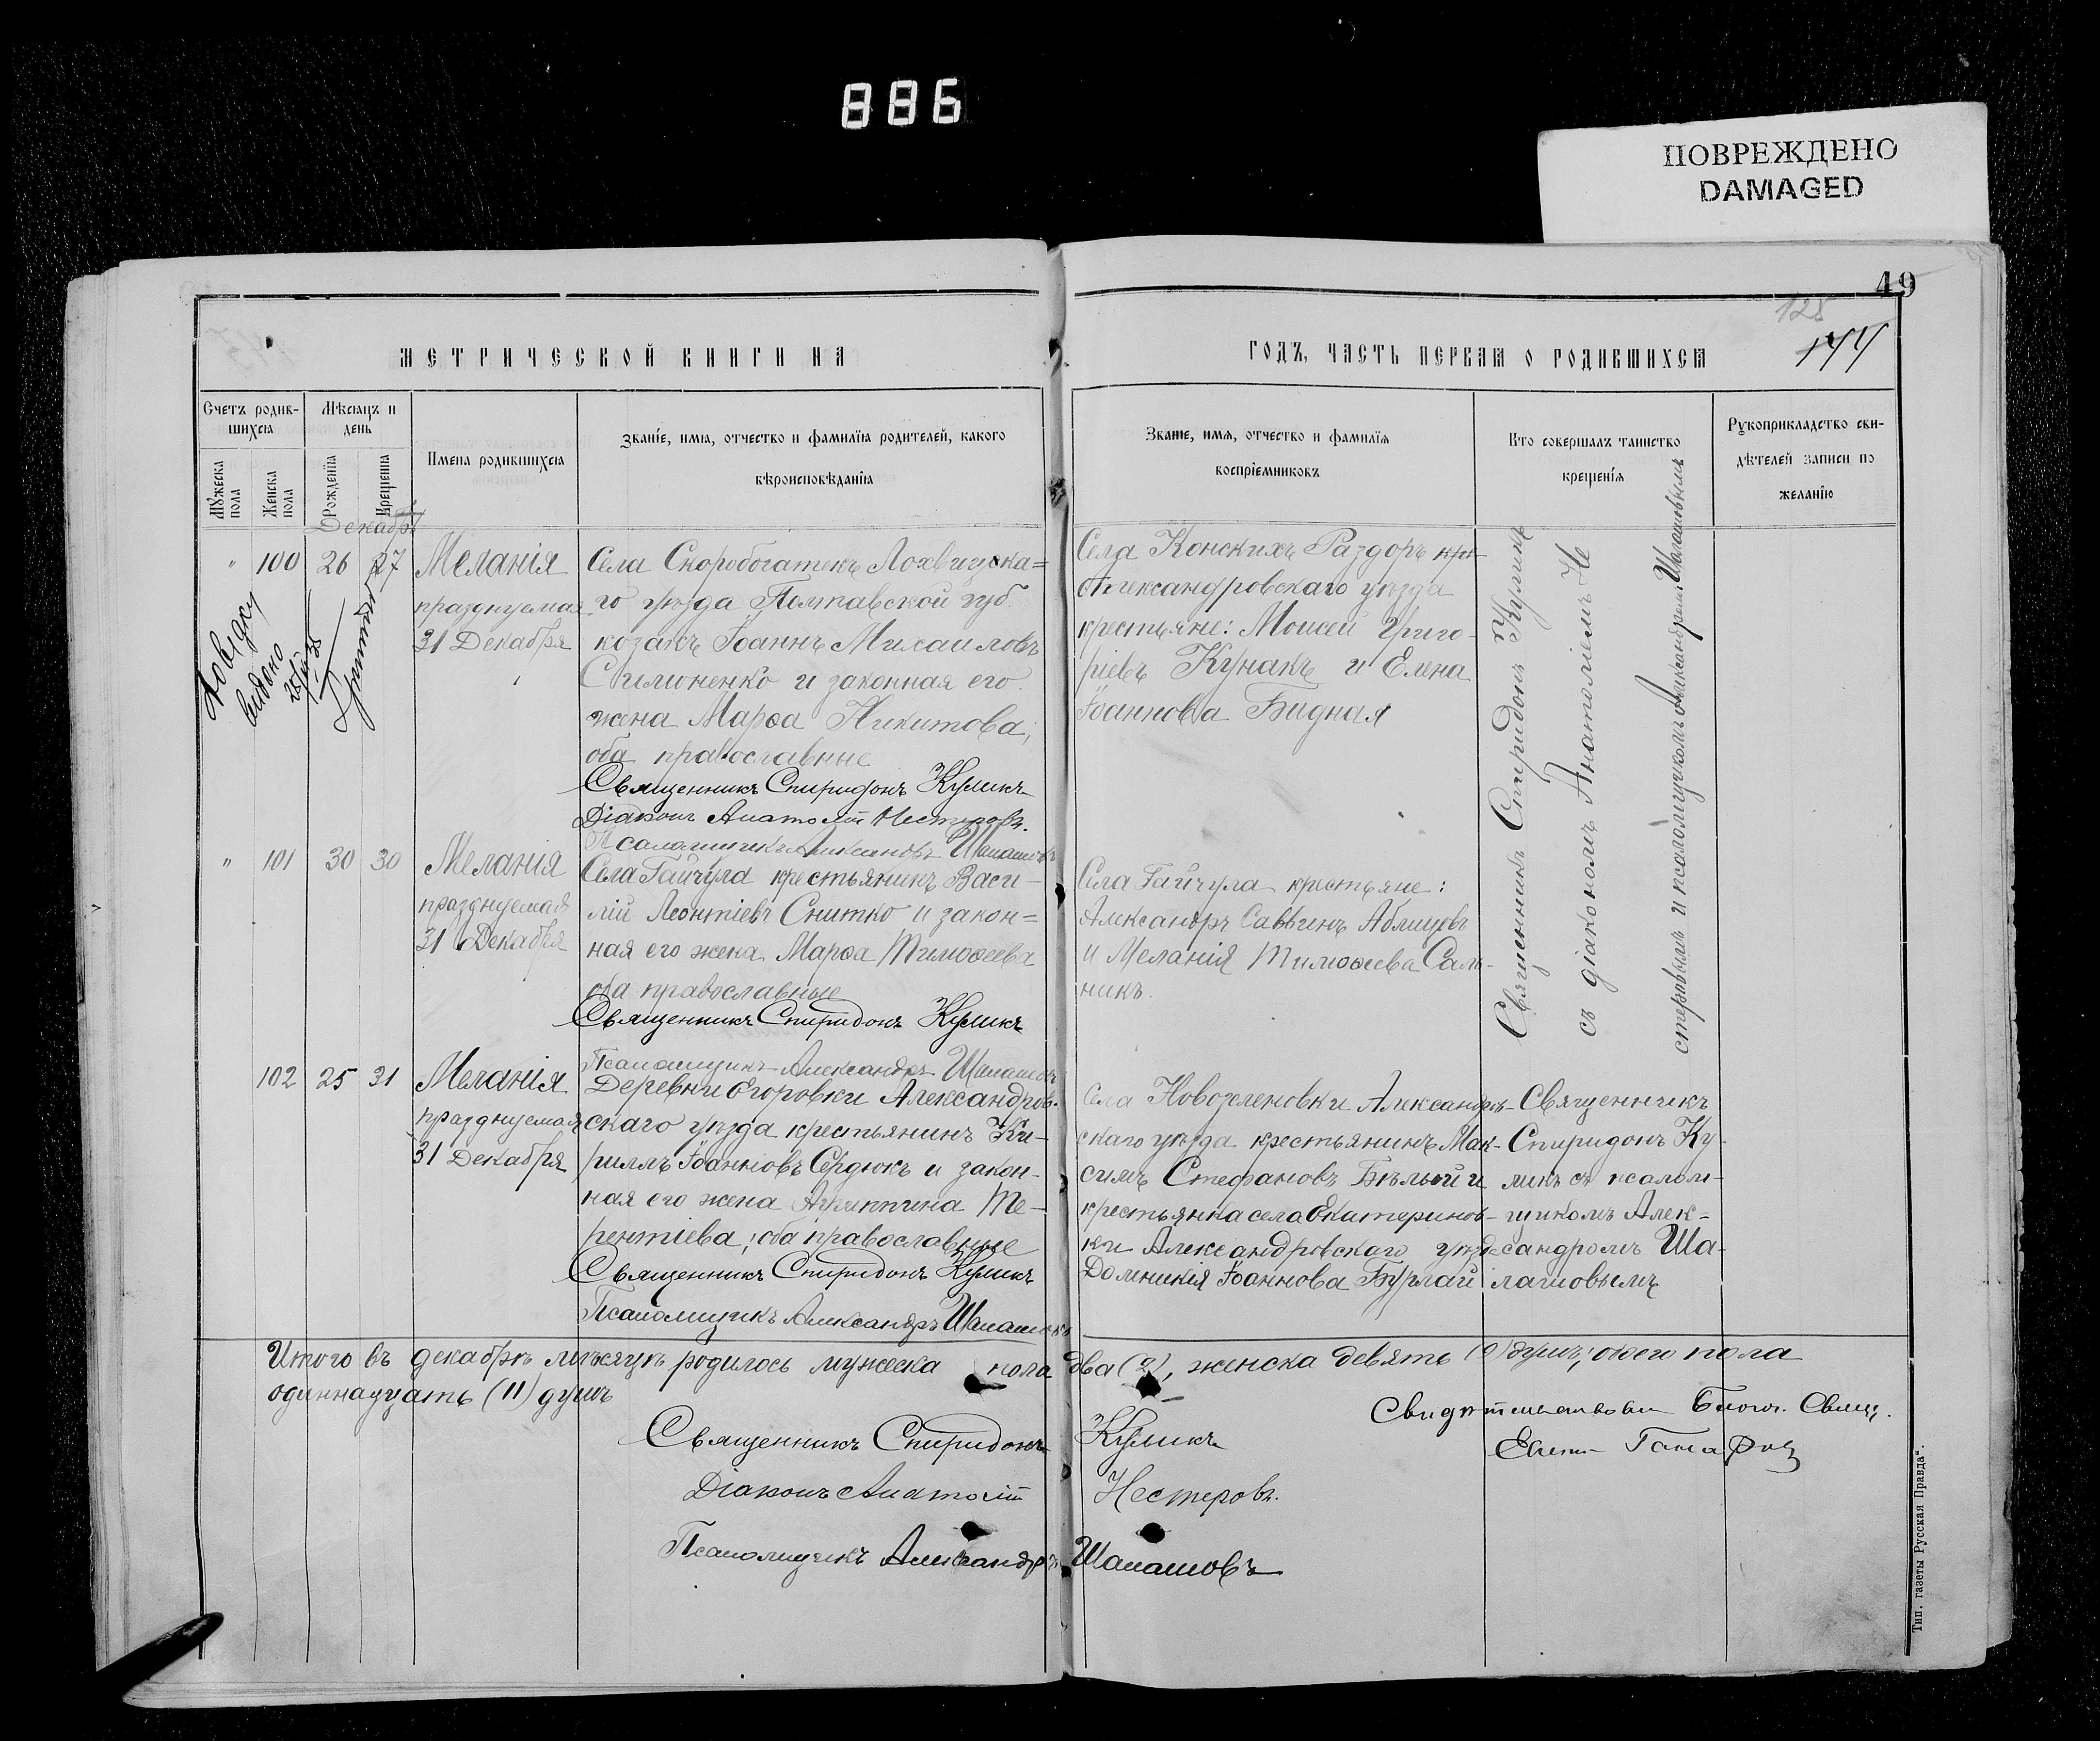 886
ПОВРЕЖДЕНО
DAMAGED
49
128
144
МЕТРИЧЕСКОЙ КНИГИ НА
ГОДЪ, ЧАСТЬ ПЕРВАЯ О РОДИВШИХСЯ
Счетъ родив-
шихся
Мѣсяцъ и
день
Мужеска
пола
Женска
пола
Рожденія
Крещенія
Имена родившихся
Званіе, имя, отчество и фамилія родителей, какого
вѣроисповѣданія
Званіе, имя, отчество и фамилія
воспріемниковъ
Кто совершалъ таинство
крещенія
Рукоприкладство сви-
дѣтелей записи по
желанію
Декабрь
" 100 26 27
Меланія
празднуемая
31 Декабря
Довідку
видано
Села Скоробогатекъ Лохвицка=
го уѣзда Полтавской губ.
козакъ Іоаннъ Михаиловъ
Симоненко и законная его
жена Марѳа Никитова;
оба православные
Священникъ Спиридонъ Куликъ
Діаконъ Анатолій Нестеровъ.
Псаломщикъ Александръ Шалашовъ
Села Конскихъ Раздоръ
Александровскаго уѣзда
крестьяне: Моисей Григо-
ріевъ Кунакъ и Елена
Іоаннова Бидная
Священникъ Спиридонъ Куликъ
съ діакономъ Анатоліемъ Не
стеровымъ и псаломщикомъ Александромъ Шалашовымъ
" 101 30 30
Меланія
празднуемая
31 Декабря
Села Гайчула крестьянинъ Васи-
лій Леонтіевъ Снитко и закон=
ная его жена Марѳа Тимоѳеева
оба православные
Священникъ Спиридонъ Куликъ
Псаломщикъ Александръ Шалашовъ
Села Гайчула крестьяне:
Александръ Саввинъ Аблицовъ
и Меланія Тимоѳеева Саль-
никъ.
102 25 31
Меланія
празднуемая
31 Декабря
Деревни Егоровки Александров-
скаго уѣзда крестьянинъ Ки-
риллъ Іоанновъ Сердюкъ и закон-
ная его жена Агриппина Те-
рентіева; оба православные
Священникъ Спиридонъ Куликъ
Псаломщикъ Александръ Шалашовъ
Села Новоселеновки Александров-
скаго уѣзда крестьянинъ Мак-
симъ Стефановъ Бѣлый и
крестьянка села Екатеринов-
ки Александровскаго уѣзда
Домникія Іоаннова Бурлай
Священникъ
Спиридонъ Ку-
ликъ съ псалом-
щикомъ Алек-
сандромъ Ша-
лашовымъ
Итого въ декабрѣ мѣсяцѣ родилось мужеска пола два (2), женска девять (9) душъ; обоего пола
одиннадцать (11) душъ
Священникъ Спиридонъ Куликъ
Діаконъ Анатолій Нестеровъ.
Псаломщикъ Александръ Шалашовъ
Свидѣтельствовалъ Благоч. Свящ.
Тип. газеты "Русская Правда".